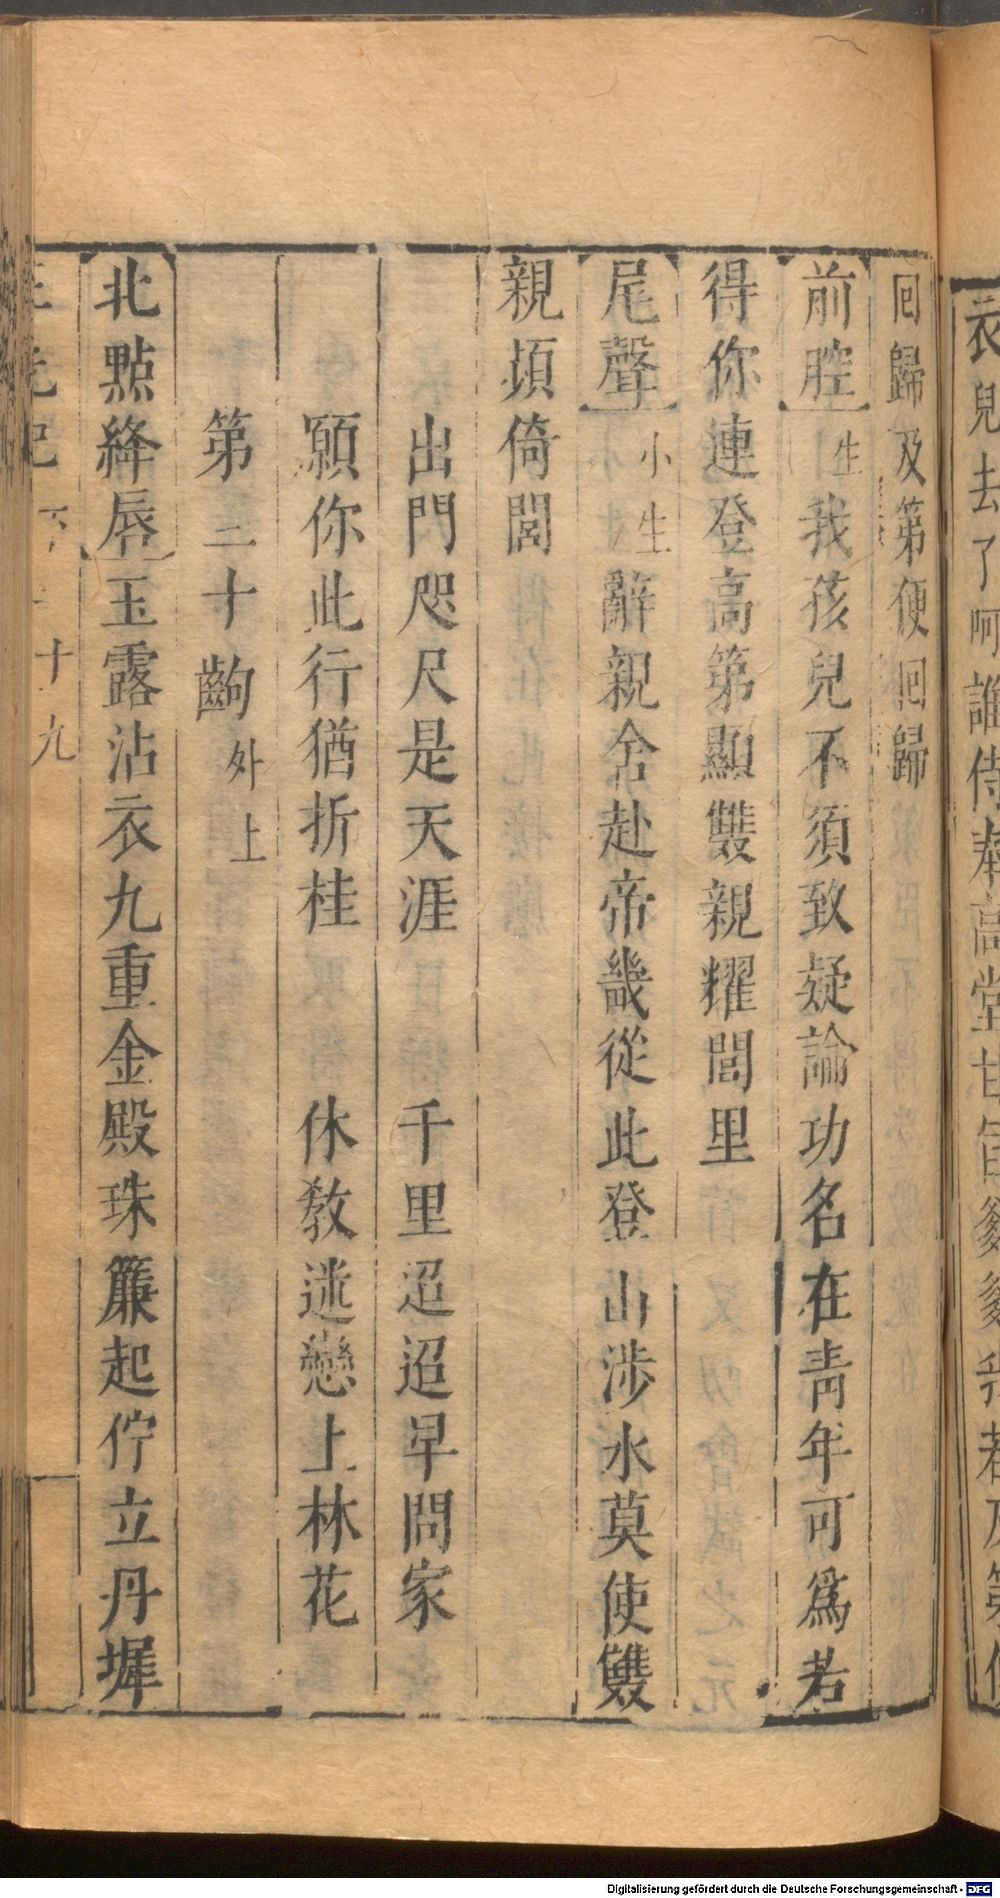 衣兒去了呵誰侍奉高堂甘旨
回歸及第便回歸
前腔生我孩兒不須致疑論功名在青年可爲若
得你連登高第顯雙親耀閭里
尾聲小生辭親舍赴帝畿從此登山涉水莫使雙
親頊倚閭
出門咫尺是天涯 千里迢迢早問家
願你此行猶折桂 休教迷戀上林花
第二十齣外上
北點絳唇玉露沾衣九重金殿珠簾起佇立丹墀
十九
Digitalisierung gefördert durch die Deutsche Forschungsgemeinschaft - DFG